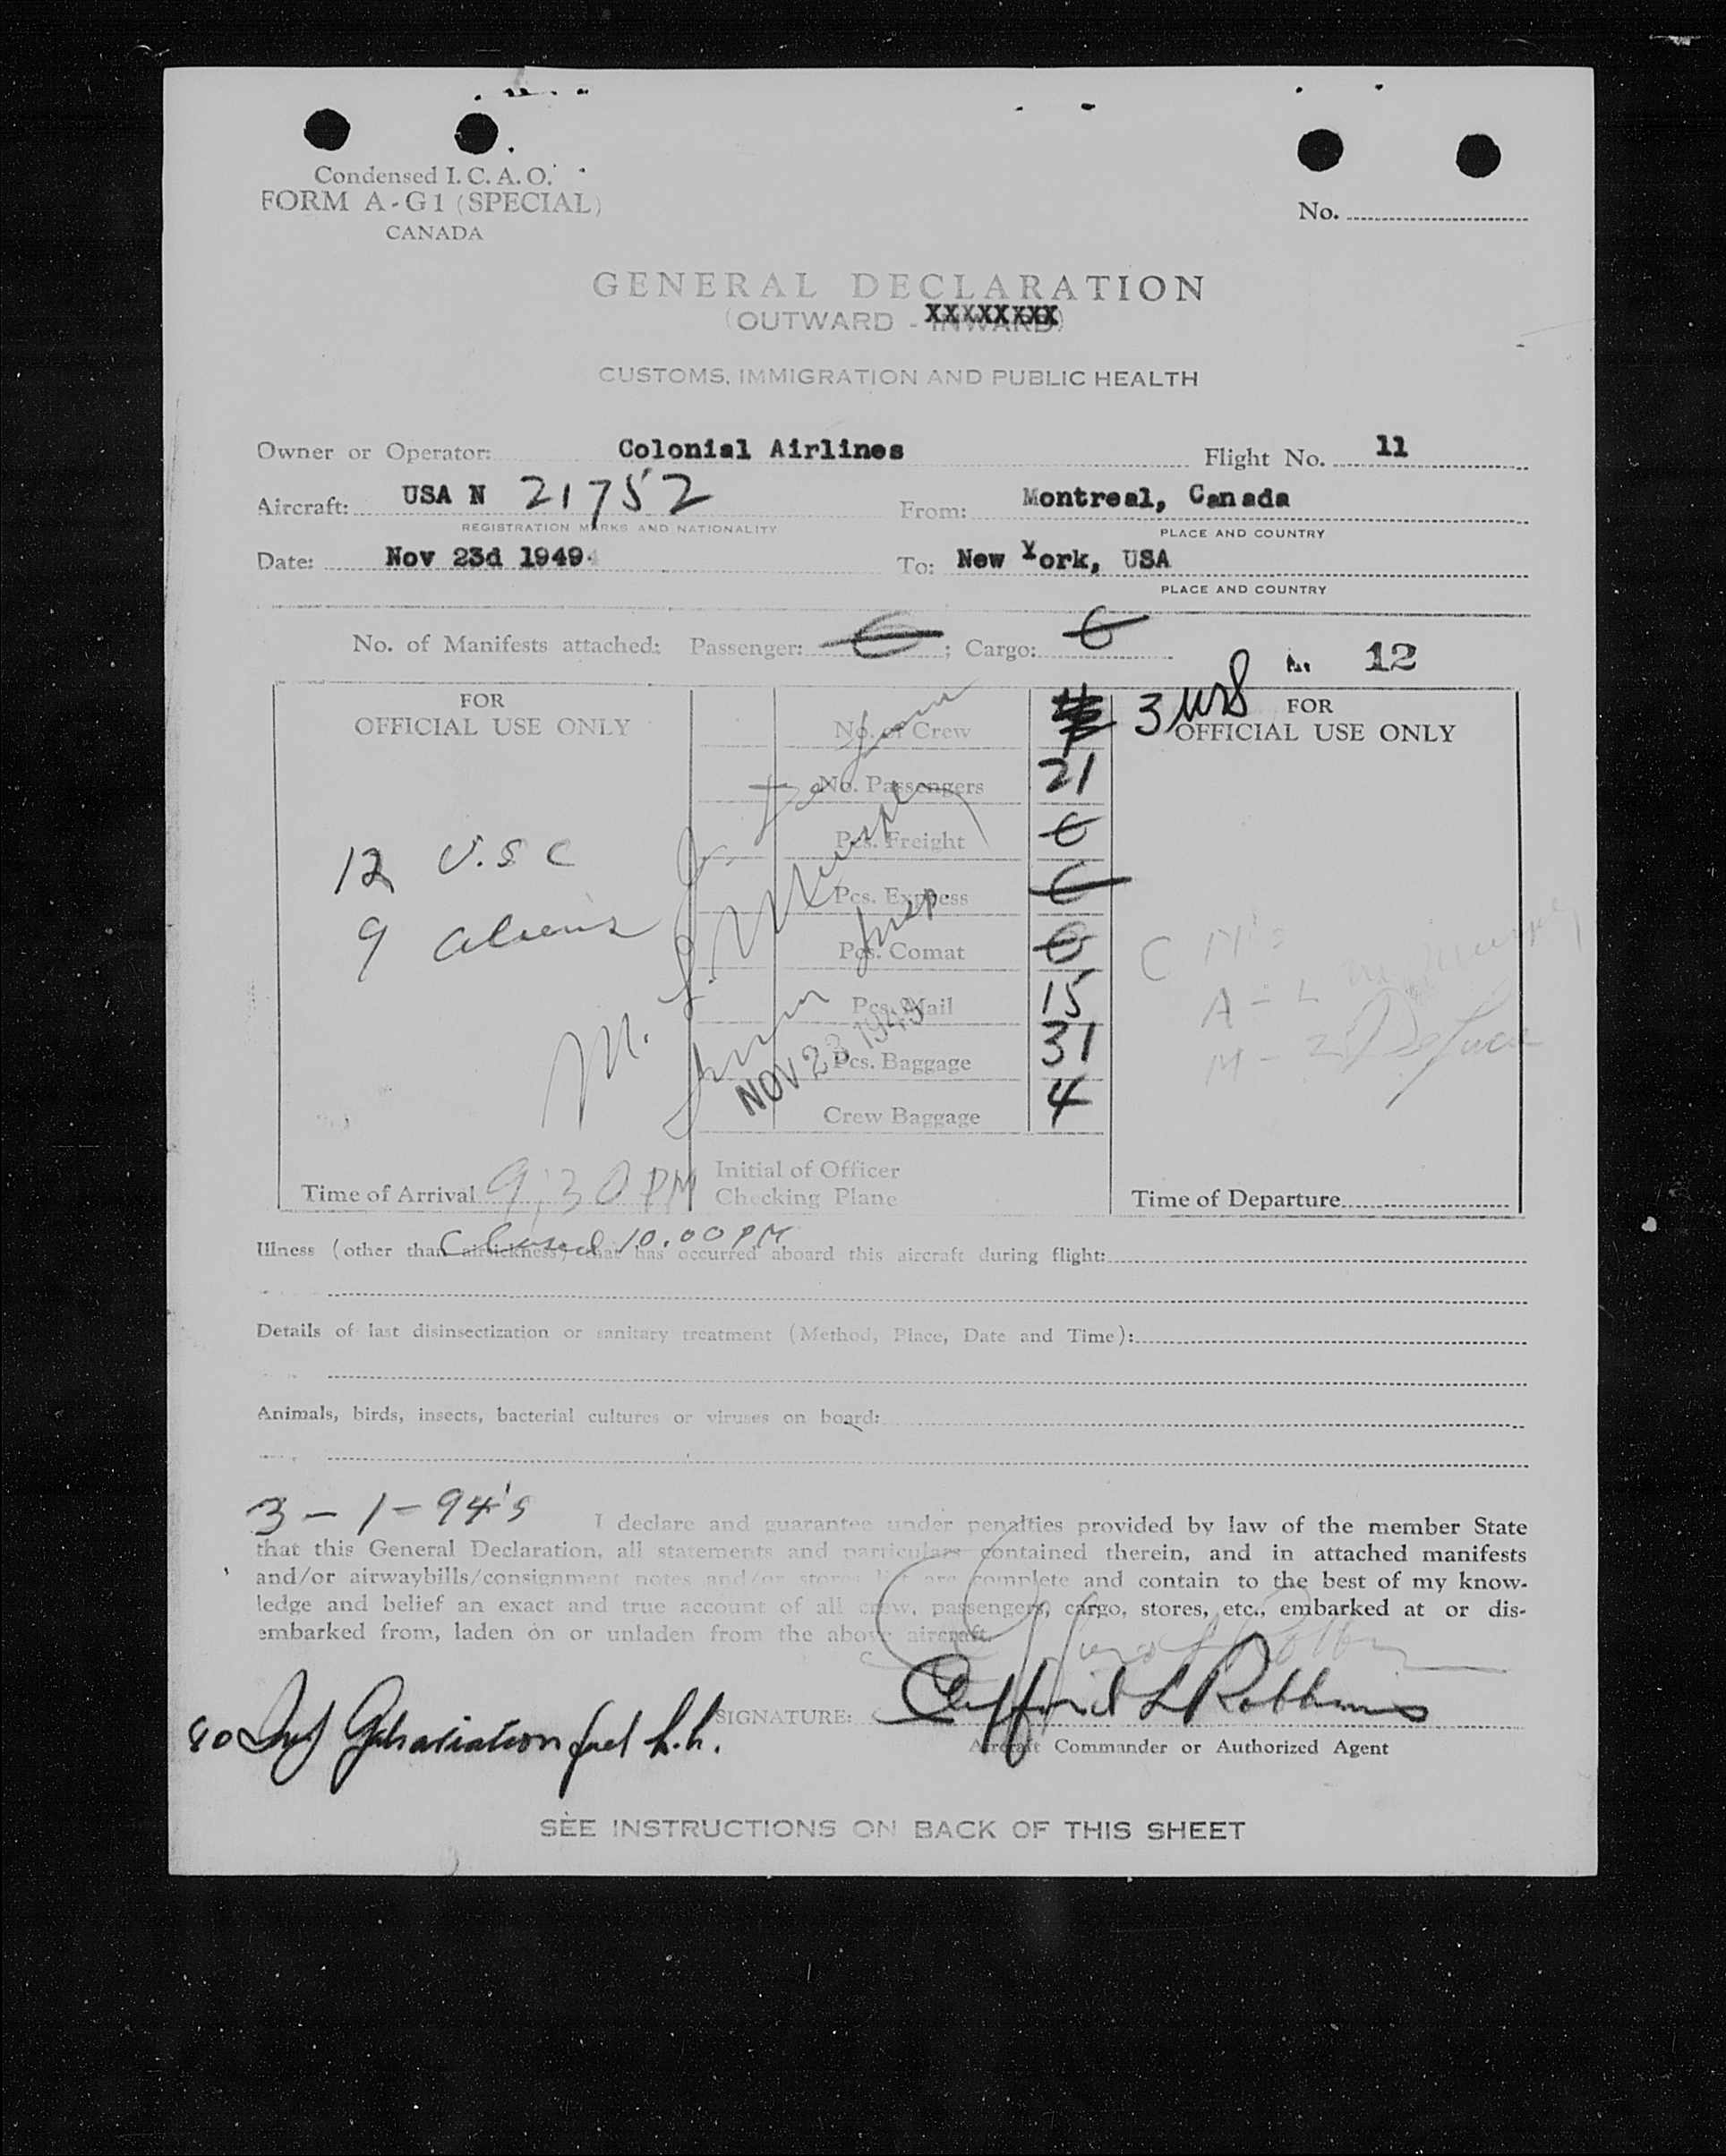 Condensed I. C. A. O.
FORM A-G1 (SPECIAL)
CANADA
No.
GENERAL DECLARATION
(OUTWARD - INWARD)
CUSTOMS, IMMIGRATION AND PUBLIC HEALTH
Owner or Operator: Colonial Airlines Flight No. 11
Aircraft: USA N 21752 From: Montreal, Canada
REGISTRATION MARKS AND NATIONALITY PLACE AND COUNTRY
Date: Nov 23d 1949 To: New York, USA
PLACE AND COUNTRY
No. of Manifests attached: Passenger: ; Cargo:
12
FOR
OFFICIAL USE ONLY
12 U.S C
9 aliens
Time of Arrival 9:30 PM
Closed 10.00 PM
No. of Crew
No. Passengers 21
Pcs. Freight
Pcs. Express
Pcs. Comat
Pcs. Mail 15
Pcs. Baggage 31
Crew Baggage 4
Initial of Officer
Checking Plane
NOV 23 1949
M. J. Murphy
Insp.
3
FOR
OFFICIAL USE ONLY
Time of Departure
Illness (other than airsickness) that has occurred aboard this aircraft during flight:
Details of last disinsectization or sanitary treatment (Method, Place, Date and Time):
Animals, birds, insects, bacterial cultures or viruses on board:
3 - 1 - 94's
I declare and guarantee under penalties provided by law of the member State
that this General Declaration, all statements and particulars contained therein, and in attached manifests
and/or airwaybills/consignment notes and/or stores list are complete and contain to the best of my know-
ledge and belief an exact and true account of all crew, passengers, cargo, stores, etc., embarked at or dis-
embarked from, laden on or unladen from the above aircraft.
SIGNATURE: Clifford L Robbins
Aircraft Commander or Authorized Agent
SEE INSTRUCTIONS ON BACK OF THIS SHEET